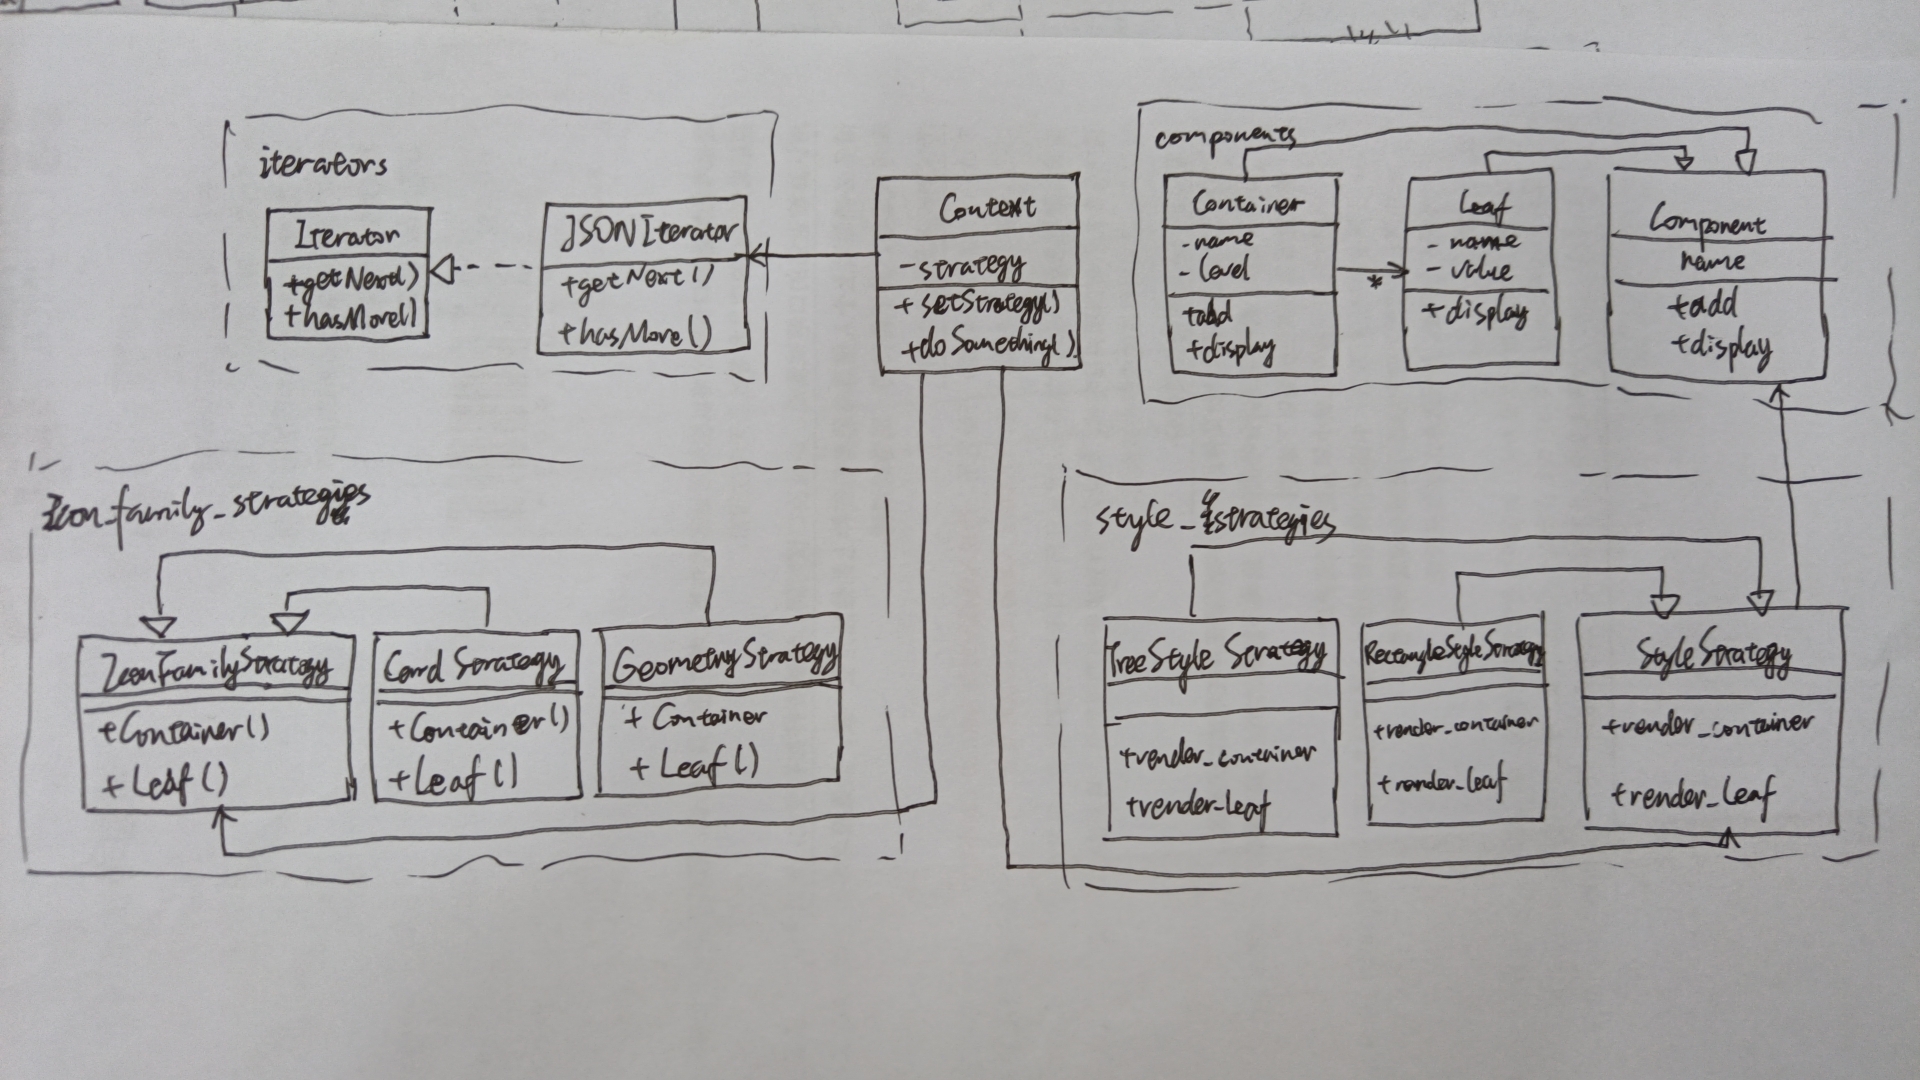 iterators
Iterator
+getNext()
+hasMore()
JSONIterator
+getNext()
+hasMore()
Context
-strategy
+setStrategy()
+doSomething()
components
Container
-name
-level
+add
+display
*
Leaf
-name
-value
+display
Component
name
+add
+display
Icon_family_strategies
IconFamilyStrategy
+Container()
+Leaf()
Card Strategy
+Container()
+Leaf()
GeometryStrategy
+Container
+Leaf()
style_strategies
TreeStyle Strategy
+render_container
+render-leaf
RectangleStyleStrategy
+render_container
+render_leaf
StyleStrategy
+render_container
+render_leaf